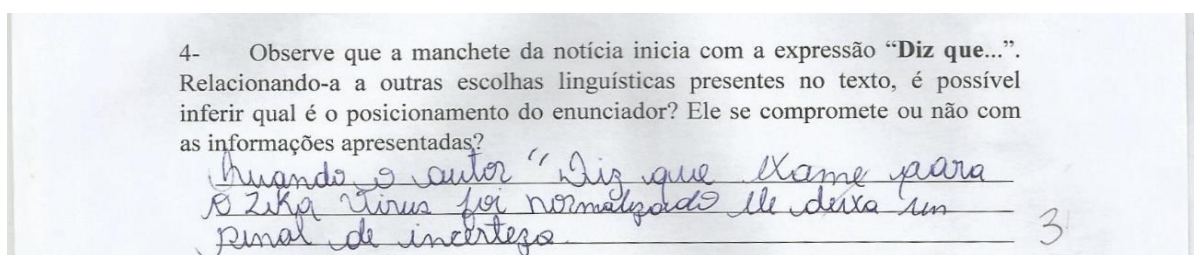 4- Observe que a manchete da notícia inicia com a expressão “Diz que...”.
Relacionando-a a outras escolhas linguísticas presentes no texto, é possível
inferir qual é o posicionamento do enunciador? Ele se compromete ou não com
as informações apresentadas?
Quando o autor "Diz que exame para
o Zika Virus foi normalizado ele deixa un
pinal de incerteza
3